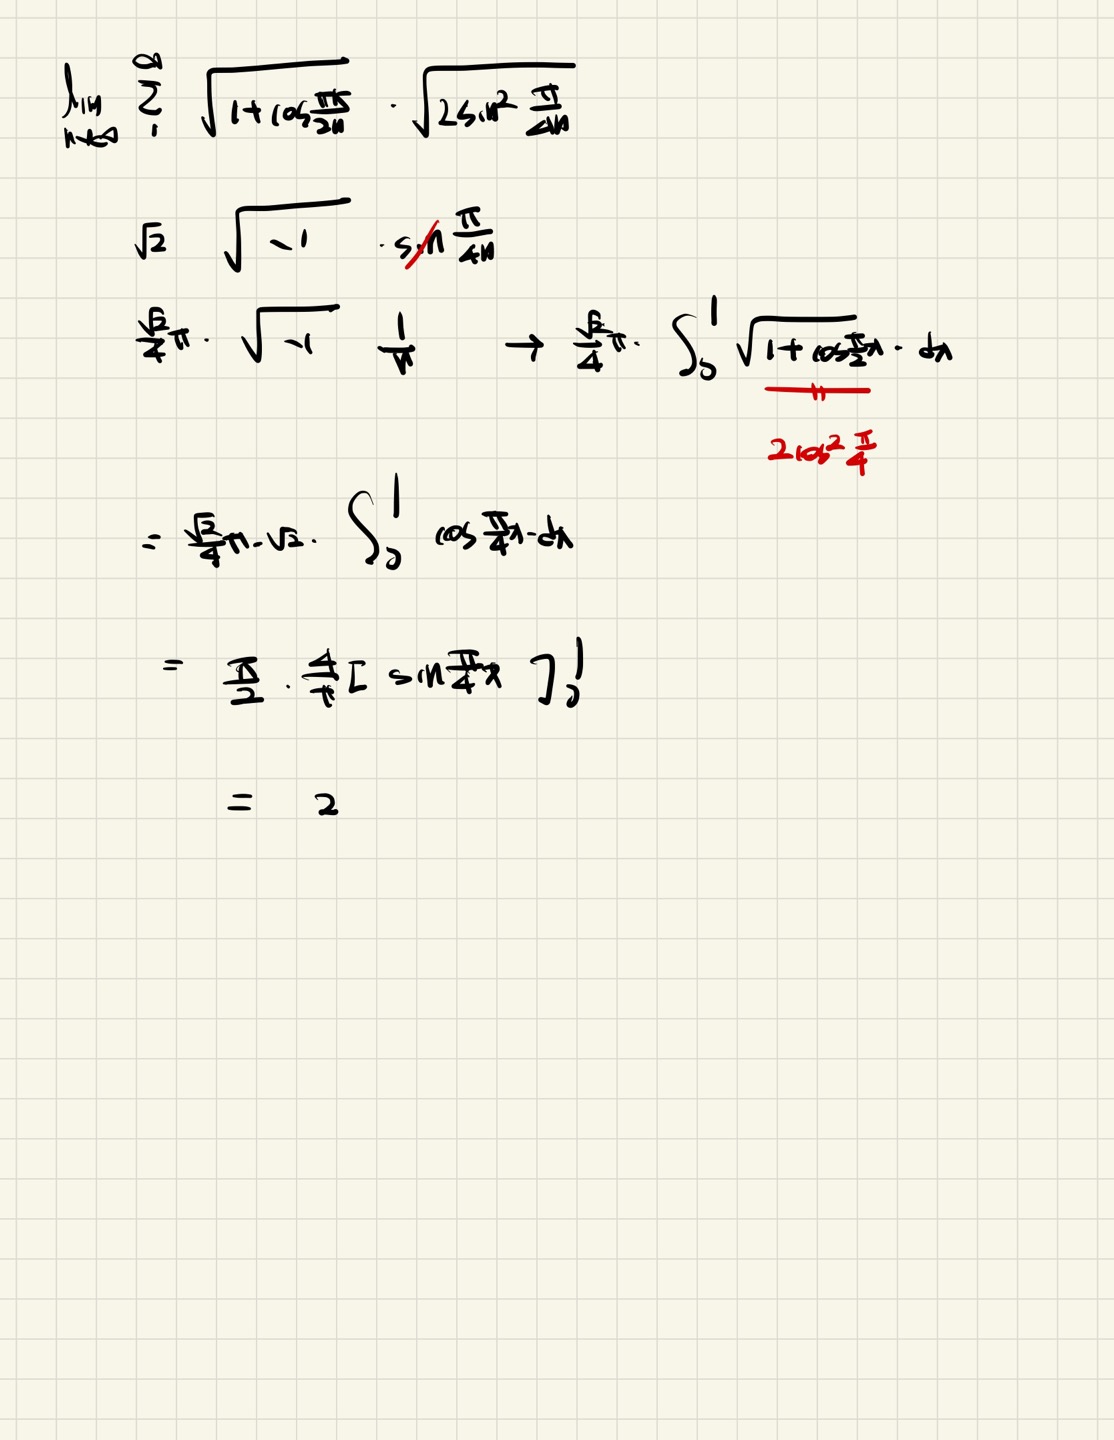 lim n→∞ ∞ Σ 1 √(1+cos πk/2n) · √(2sin² π/4n)
√2 √(~1) · sin π/4n
√2/4 π · √(~1) 1/n → √2/4 π · ∫₀¹ √(1+cos π/2 x) · dx
2cos² π/4
= √2/4 π · √2 · ∫₀¹ cos π/4 x · dx
= π/2 · 4/π [ sin π/4 x ]₀¹
= 2